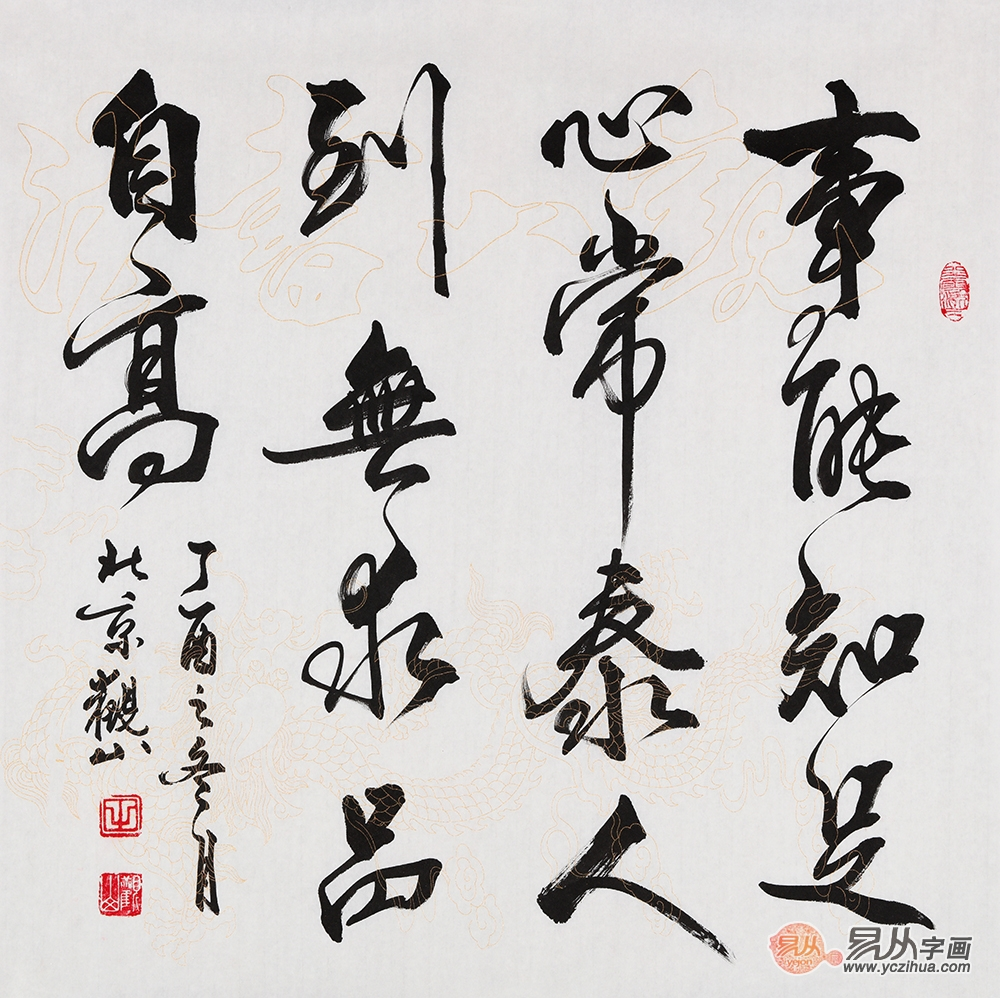 事能知足
心常泰人
到無求品
自高
丁酉之冬月
北京觀山
易从
yicon
易从字画
www.yczihua.com